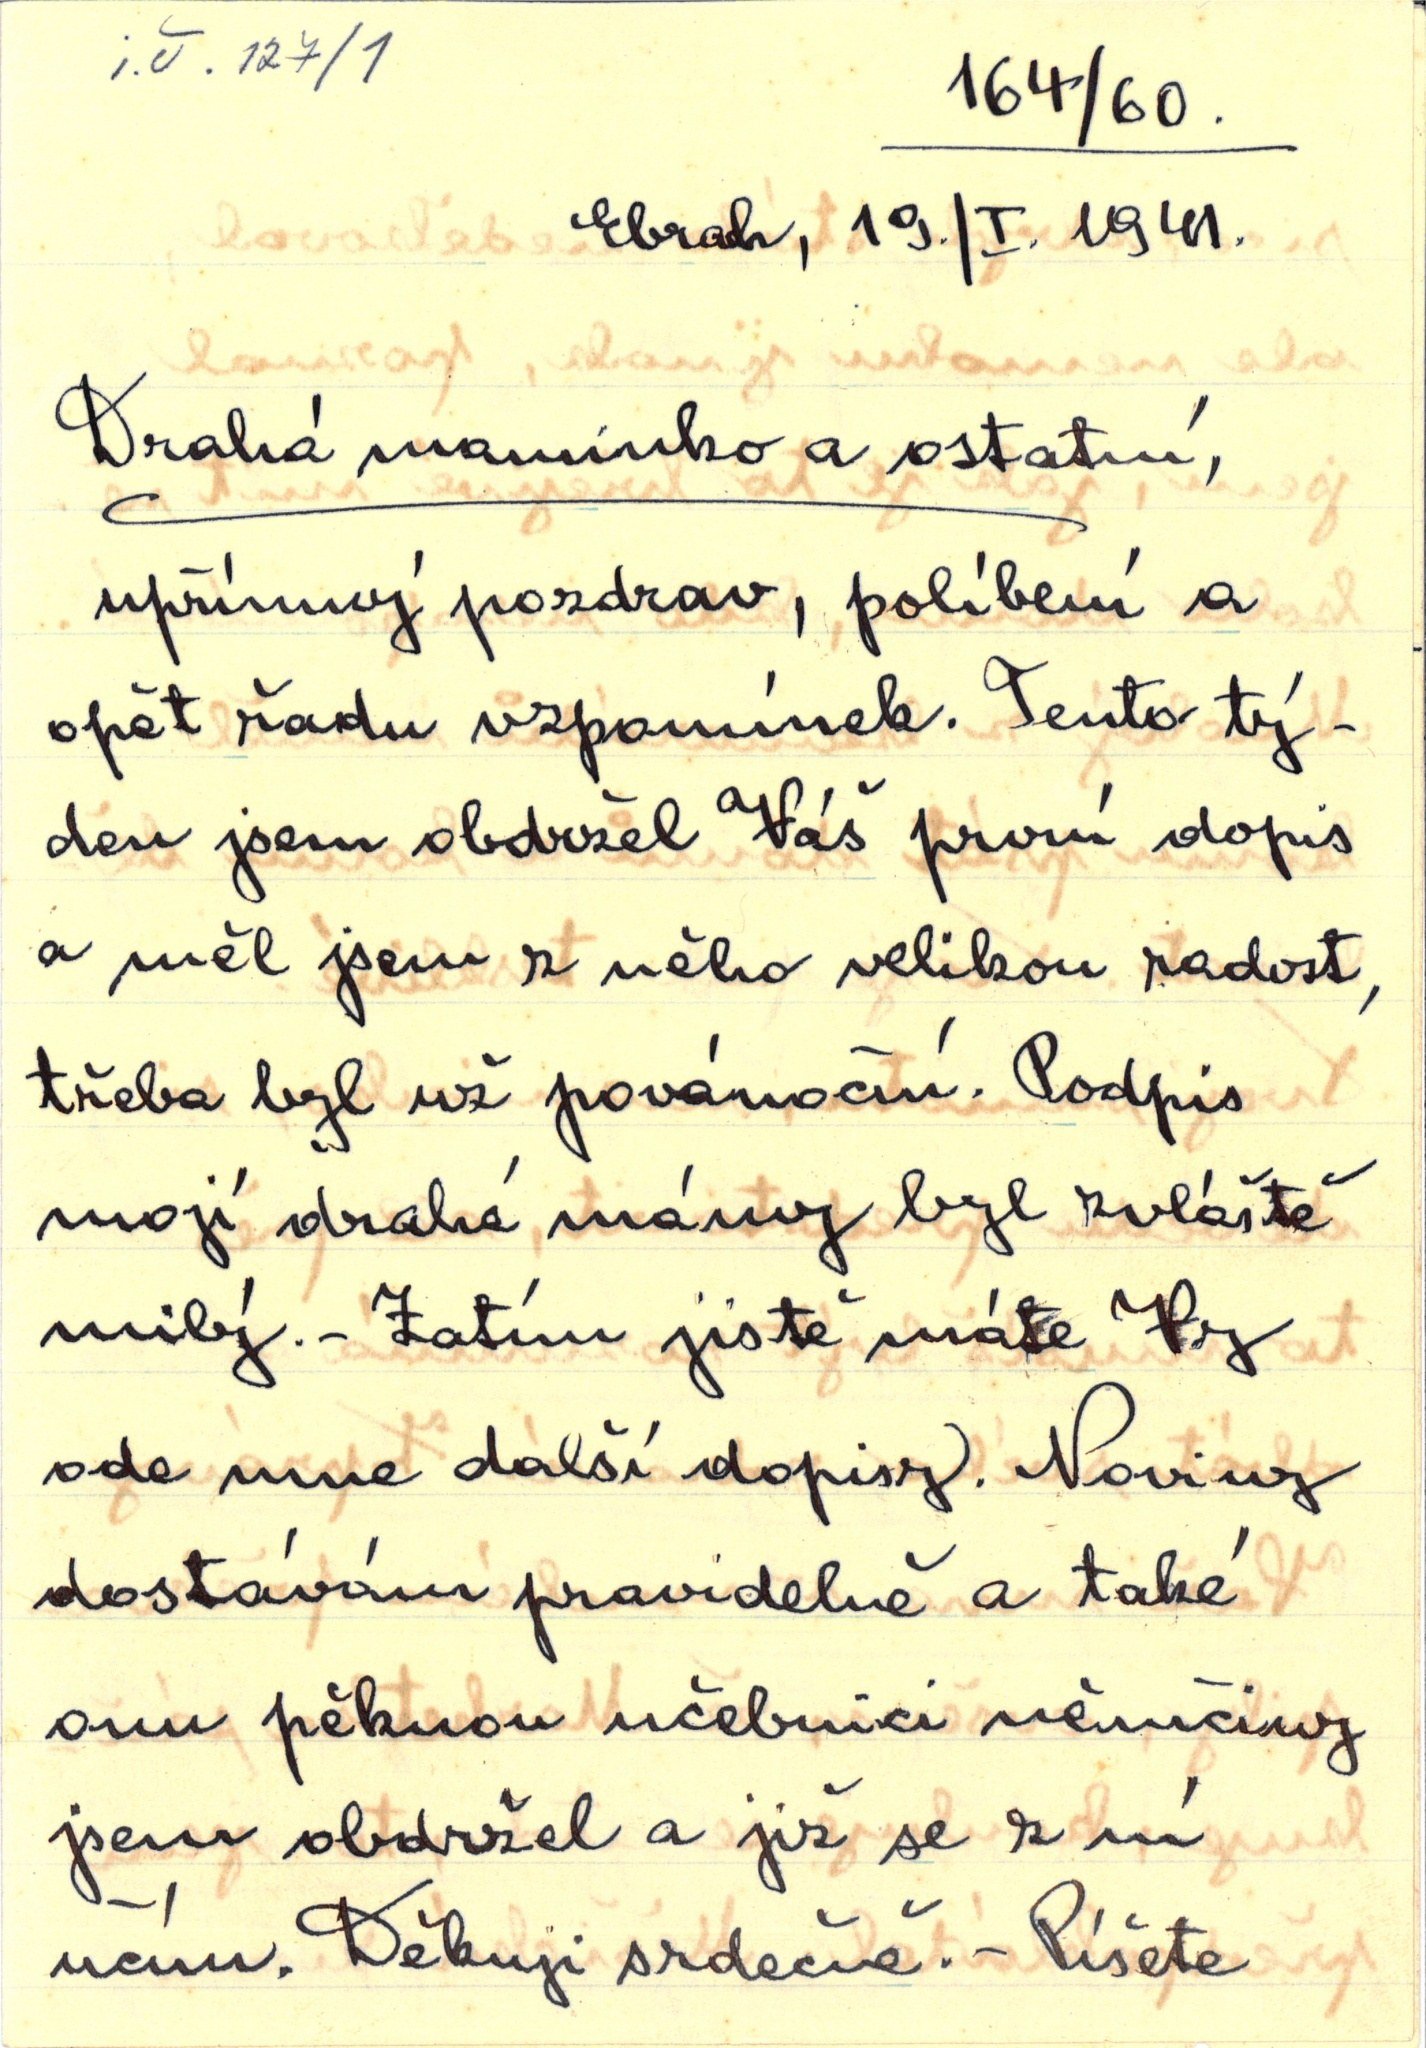 i.č. 127/1
164/60.
Ebrach, 19./I. 1941.
Drahá maminko a ostatní,
upřímný pozdrav, políbení a
opět řadu vzpomínek. Tento tý-
den jsem obdržel Váš první dopis
a měl jsem z něho velikou radost,
třeba byl už povánoční. Podpis
mojí drahé mámy byl zvláště
milý. - Zatím jistě máte Vy
ode mne další dopisy. Noviny
dostávám pravidelně a také
onu pěknou učebnici němčiny
jsem obdržel a již se z ní
učím. Děkuji srdečně. - Píšete